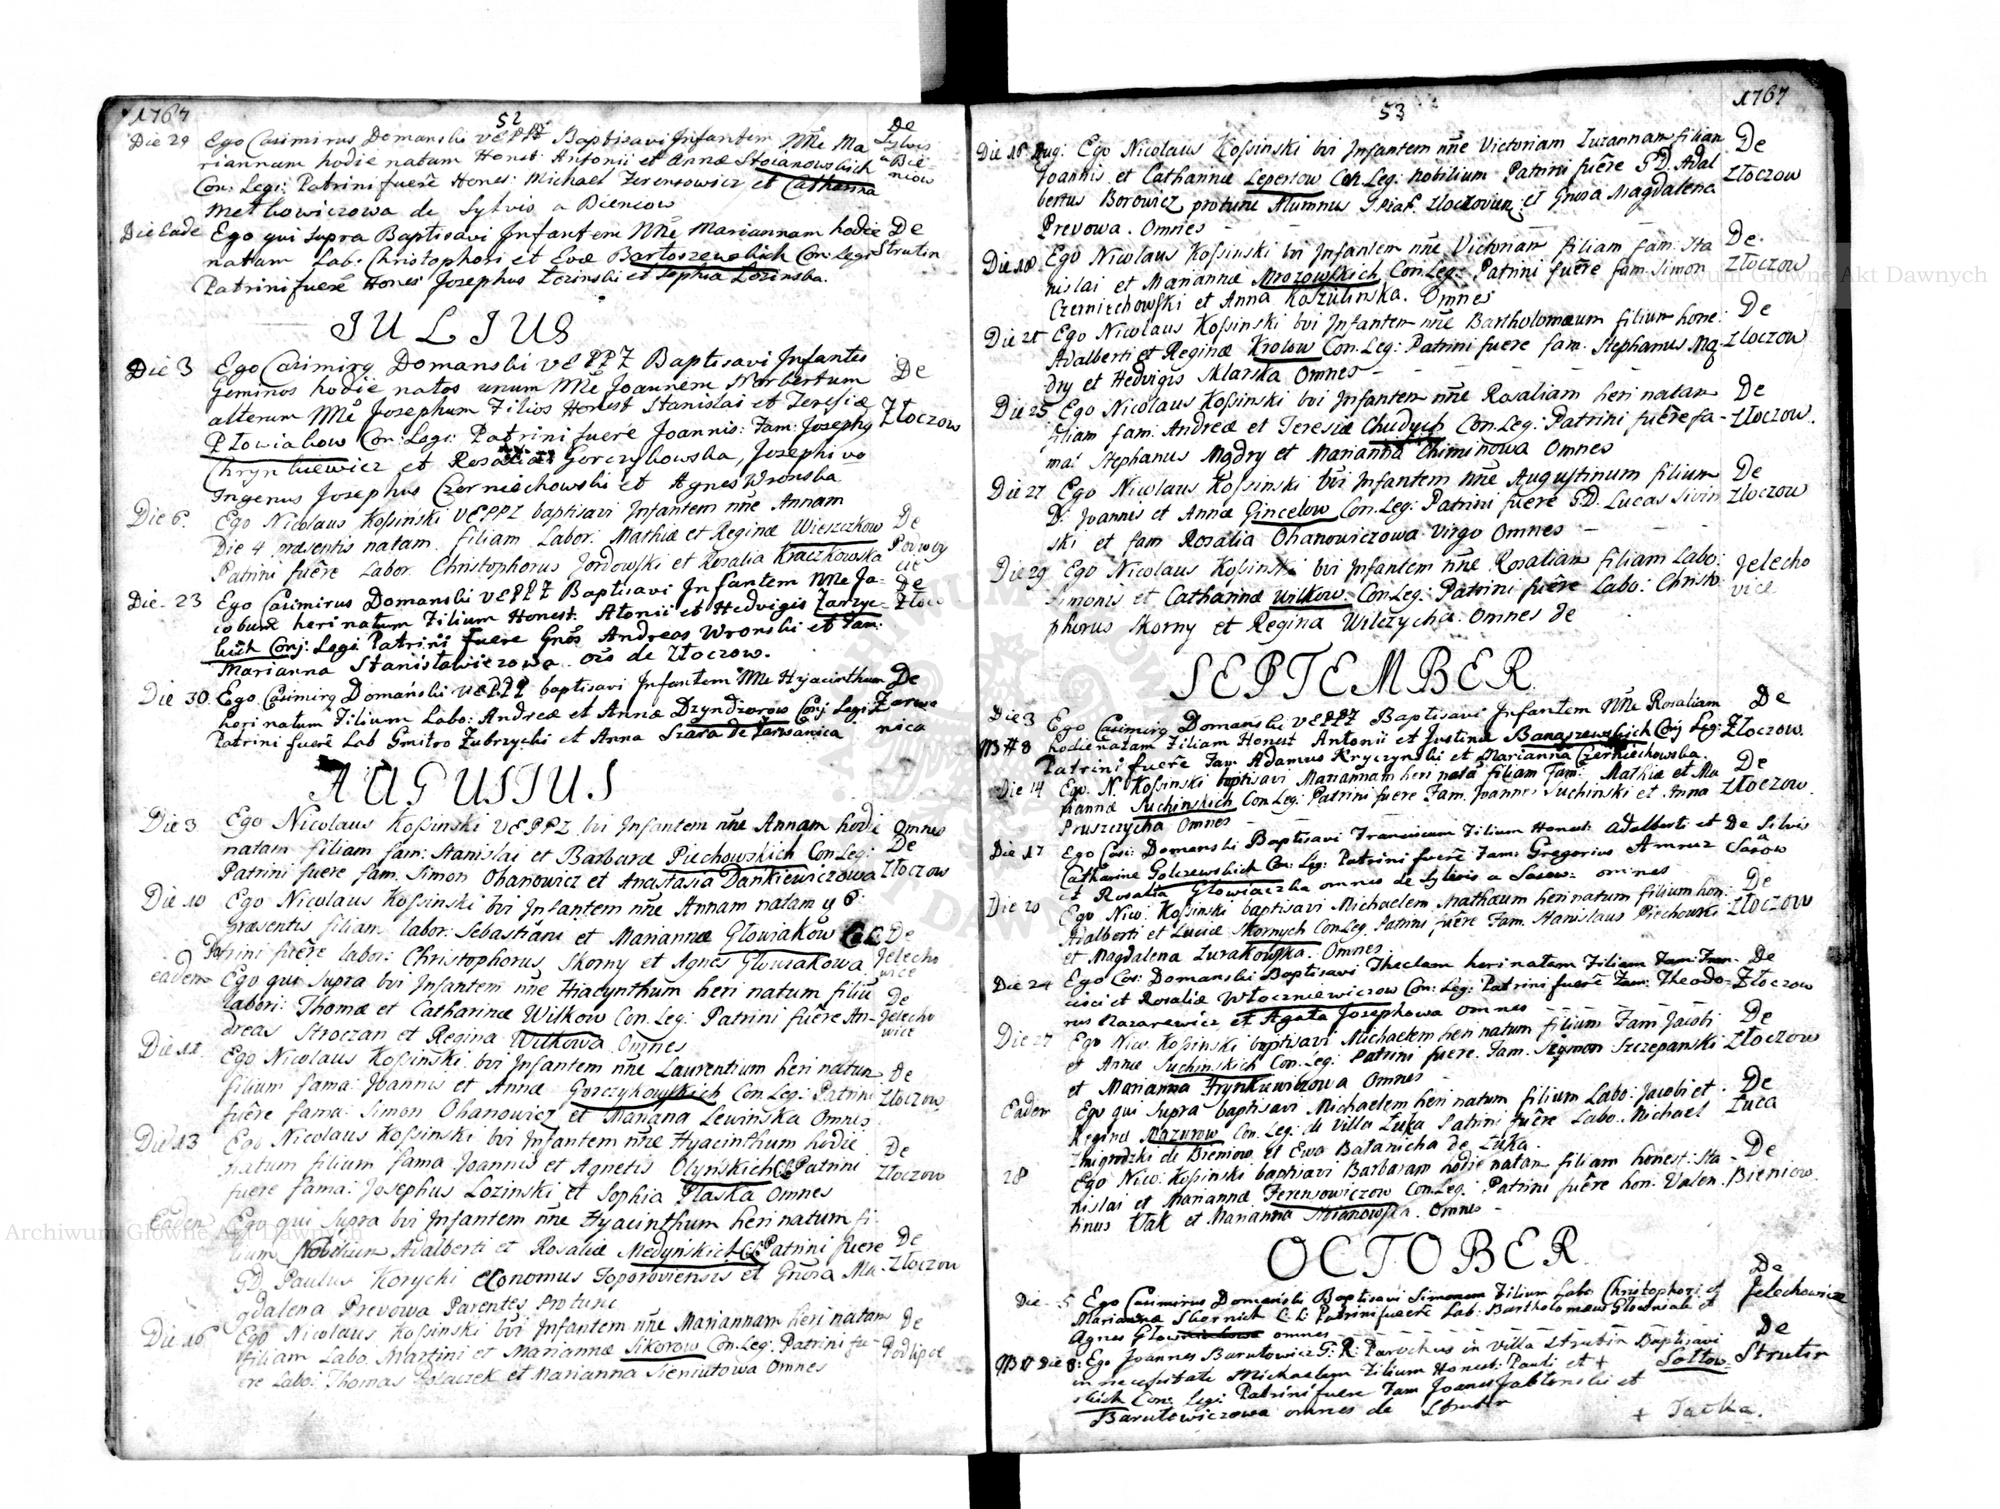 1767
52
Die 29 Ego Casimirus Domanski VEPPZ Baptisavi Infantem Nne Ma De
riannam hodie natam Honest: Antonii et Annæ Stoianowskich Sylvis
Con: Legi: Patrini fuere Hones: Michael Ferensowicz et Catharina a Bie
niow
Metkowiczowa de Sylvis a Bieniow
Die Eade Ego qui supra Baptisavi Infantem Nne Mariannam hodie De
natam Lab: Christophori et Evæ Bartoszewskich Con: Legi Strutin
Patrini fuere Hones Josephus Lozinski et Sophia Lozinska.
JULIUS
Die 3 Ego Casimirq Domanski VEPPZ Baptisavi Infantes
Geminos hodie natos unum Nne Joannem Norbertum De
alterum Nne Josephum Filios Honest Stanislai et Teresiæ
Płowiakow Con: Legi: Patrini fuere Joannis: Fam: Josephq Złoczow
Chrynkiewicz et Rosalia Gorczykowska, Josephi vo
Ingenus Josephus Czerniechowski et Agnes Wronska
Die 6. Ego Nicolaus Kossinski VEPPZ baptisavi Infantem nne Annam
Die 4 præsentis natam filiam Labor. Mathiæ et Reginæ Wieszczkow De
Patrini fuere Labor. Christophorus Jordowski et Rosalia Kraczkowska
Die 23 Ego Casimirus Domanski VEPPZ Baptisavi Infantem Nne Ja- De
cobum heri natum Filium Honest: Atonii et Hedvigis Zarzyc- Złocz
kich Conj: Legi Patrini fuere Gnos Andreas Wronski et Fam:
Marianna Stanislawiczowa oes de Złoczow.
Die 30. Ego Casimirq Domański VEPPZ baptisavi Infantem Nne Hyacinthum De
heri natum Filium Labo: Andreæ et Annæ Dzyndzorow Conj Legi Zarwa
Patrini fuere Lab Gmitro Zubrzycki et Anna Szara de Zarwanica nica
AUGUSTUS
Die 3 Ego Nicolaus Kossinski VEPPZ bvi Infantem nne Annam hodie Omnes
natam filiam fam: Stanislai et Barbaræ Piechowskich Con Leg: De
Patrini fuere fam. Simon Ohanowicz et Anastasia Dankiewiczowa Złoczow
Die 10 Ego Nicolaus Kossinski bvi Infantem nne Annam natam 6
præsentis filiam labor: Sebastiani et Mariannæ Głowakow De
Patrini fuere labor: Christophorus Skorny et Agnes Głowakowa Jelecho
wice
eadem Ego qui supra bvi Infantem nne Hiacynthum heri natum filiu
labori: Thomæ et Catharinæ Wilkow Con. Leg: Patrini fuere An- De
Jelecho
dreas Stroczan et Regina Witkowa Omnes wice
Die 11 Ego Nicolaus Kossinski bvi Infantem nne Laurentium heri natum
filium fama: Joannis et Annæ Gorczykowskich Con Leg: Patrini De
fuere fama: Simon Ohanowicz et Mariana Lewinska Omnes Złoczow
Die 13 Ego Nicolaus Kossinski bvi Infantem nne Hyacinthum hodie
natum filium fama Joannis et Agnetis Olyńskich Patrini De
fuere fama: Josephus Lozinski et Sophia Płaska Omnes Złoczow
Eaden Ego qui supra bvi Infantem nne Hyacinthum heri natum fi-
lium Nobilium Adalberti et Rosaliæ Medyńskich Patrini fuere De
GD Paulus Korycki Œconomus Toporoviensis et Gnosa Ma- Złoczow
gdalena Prevowa Parentes protunc
Die 16 Ego Nicolaus Kossinski bvi Infantem nne Mariannam heri natam De
filiam Labo. Martini et Mariannæ Sikorow Con. Leg. Patrini fu- Podlipce
ere Labo: Thomas Polaczek et Marianna Sieniutowa Omnes
53
1767
Die 16 Aug: Ego Nicolaus Kossinski bvi Infantem nne Victoriam Zuzannam filiam De
Joannis et Catharinæ Lepertow Con Leg. nobilium Patrini fuere GD. Adal Złoczow
bertus Borowicz protunc Alumnus et Gnosa Magdalena
Prevowa. Omnes
Die 18 Ego Nicolaus Kossinski bvi Infantem nne Victoriam filiam fam: Sta De
nislai et Mariannæ Mrozowskich Con Leg: Patrini fuere fam. Simon Złoczow
Czerniechowski et Anna Koszulinska. Omnes
Die 21 Ego Nicolaus Kossinski bvi Infantem nne Bartholomæum filium hone: De
Adalberti et Reginæ Krolow Con. Leg: Patrini fuere fam. Stephanus Mą- Złoczow
dry et Hedvigis Sklarska Omnes
Die 25 Ego Nicolaus Kossinski bvi Infantem nne Rosaliam heri natam De
filiam fam. Andreæ et Teresiæ Chudych Con. Leg: Patrini fuere fa- Złoczow.
ma: Stephanus Mądry et Marianna Chiminowa Omnes
Die 27 Ego Nicolaus Kossinski bvi Infantem nne Augustinum filium De
D: Joannis et Annæ Gincelow Con. Leg: Patrini fuere GD. Lucas Sivin Złoczow
ski et fam Rosalia Ohanowiczowa Virgo Omnes
Die 29 Ego Nicolaus Kossinski bvi Infantem nne Rosaliam filiam Labo: Jelecho
Simonis et Catharinæ Wilkow. Con. Leg: Patrini fuere Labo: Christo- vice
phorus Skorny et Regina Wilczycha. Omnes de
SEPTEMBER
Die 3 Ego Casimirq Domanski VEPPZ Baptisavi Infantem Nne Rosaliam De
NB # 8 hodie natam Filiam Honest Antonii et Justinæ Banaszewskich Conj Leg: Złoczow.
Patrini fuere Fam Adamus Kryczynski et Marianna Czerniechowska.
Die 14 Ego. N. Kossinski baptisavi Mariannam heri nata filiam Fam: Mathiæ et Ma De
riannæ Suchinskich Con. Leg: Patrini fuere Fam. Joannes Suchinski et Anna Złoczow.
Pruszczycha Omnes
Die 17 Ego Casi: Domanski Baptisavi Franciscum Filium Honest: Adalberti et De Silvis
Catharine Golczewskich Con: Leg: Patrini fuere Fam: Gregorius Amruz a Sasow
et Rosalia Głowiaczka omnes de Sylvis a Sasow: omnes
Die 20 Ego Nico: Kossinski baptisavi Michaelem Mathæum heri natum filium hon: De
Adalberti et Luciæ Skornych Con. Leg. Patrini fuere Fam. Stanislaus Piechowski Złoczow
et Magdalena Zurakowska. Omnes
Die 24 Ego Cas: Domanski Baptisavi Theclam heri natam Filiam Fam: Fran- De
cisci et Rosaliæ Włoczniewiczow Con: Leg: Patrini fuere Fam: Theodo- Złoczow
rus Nazarewicz et Agata Josephowa omnes
Die 27 Ego Nico Kossinski baptisavi Michaelem heri natum filium Fam Jacobi De
et Annæ Suchinskich Con. Leg: Patrini fuere Fam. Szymon Szczepanski Złoczow
et Marianna Hrynkiewiczowa Omnes
Eadem Ego qui supra baptisavi Michaelem heri natum filium Labo: Jacobi et De
Reginæ Mazurow Con. Leg: de villa Łuka Patrini fuere Labo: Michael Łuca
Zmigrodzki de Bieniow et Ewa Batanicha de Łuka.
28 Ego Nico: Kossinski baptisavi Barbaram hodie natam filiam honest: Sta- De
nislai et Mariannæ Ferensowiczow Con. Leg: Patrini fuere hon: Valen- Bieniow.
tinus Ułak et Marianna Stoianowska. Omnes
OCTOBER
Die 5 Ego Casimirus Domański Baptisavi Simonem Filium Labo: Christophori et De
Mariannæ Skornich C. L: Patrini fuere Lab: Bartholomæus Głowniak et Jelechowicze
Agnes omnes
NB 17 Die 8: Ego Joannes Barutowicz G: R: Parochus in Villa Strutin Baptisavi De
in necessitate Michaelem Filium Honest: Pauli et + Sottow Strutin
skich Con: Legi: Patrini fuere Fam Joanes Jabłonski et
Barutowiczowa omnes de Strutin
+ Tacka.
Archiwum Główne Akt Dawnych
Archiwum Główne Akt Dawnych